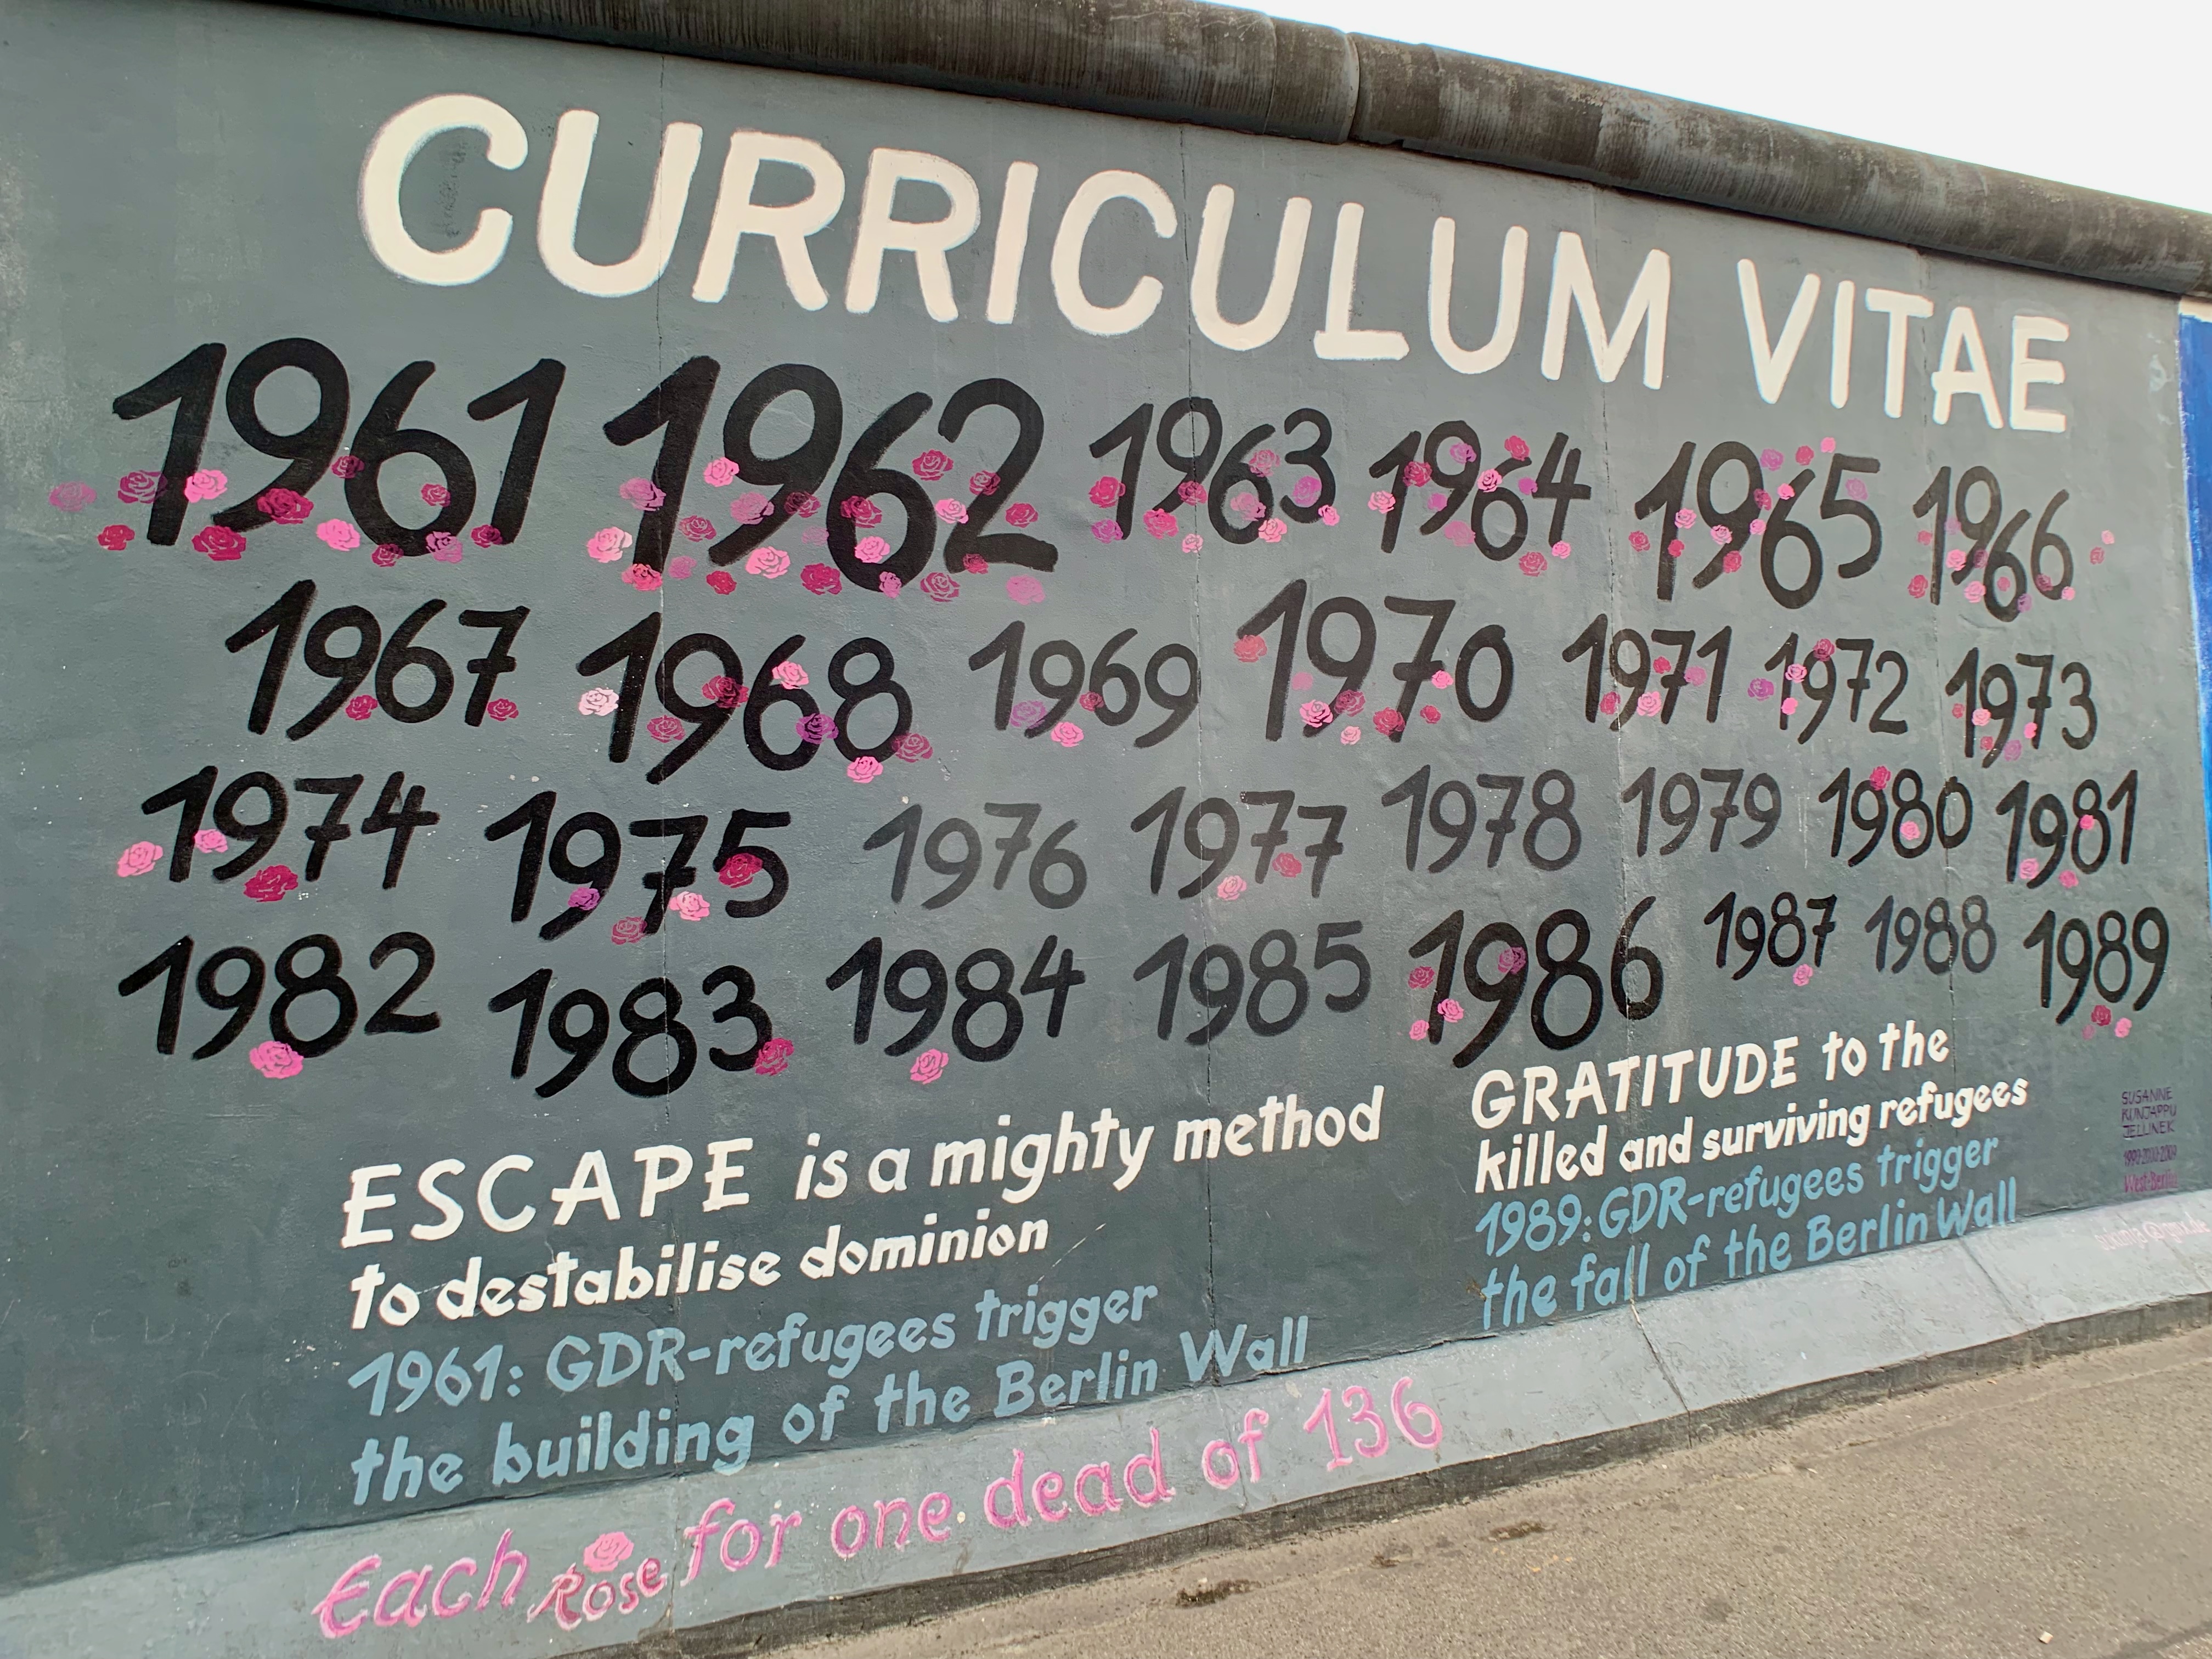 CURRICULUM VITAE
1961 1962 1963 1964 1965 1966
1967 1968 1969 1970 1971 1972 1973
1974 1975 1976 1977 1978 1979 1980 1981
1982 1983 1984 1985 1986 1987 1988 1989
ESCAPE is a mighty method
to destabilise dominion
1961: GDR-refugees trigger
the building of the Berlin Wall
GRATITUDE to the
killed and surviving refugees
1989: GDR-refugees trigger
the fall of the Berlin Wall
SUSANNE
KUNJAPPU
JELLINEK
West-Berlin
Each Rose for one dead of 136